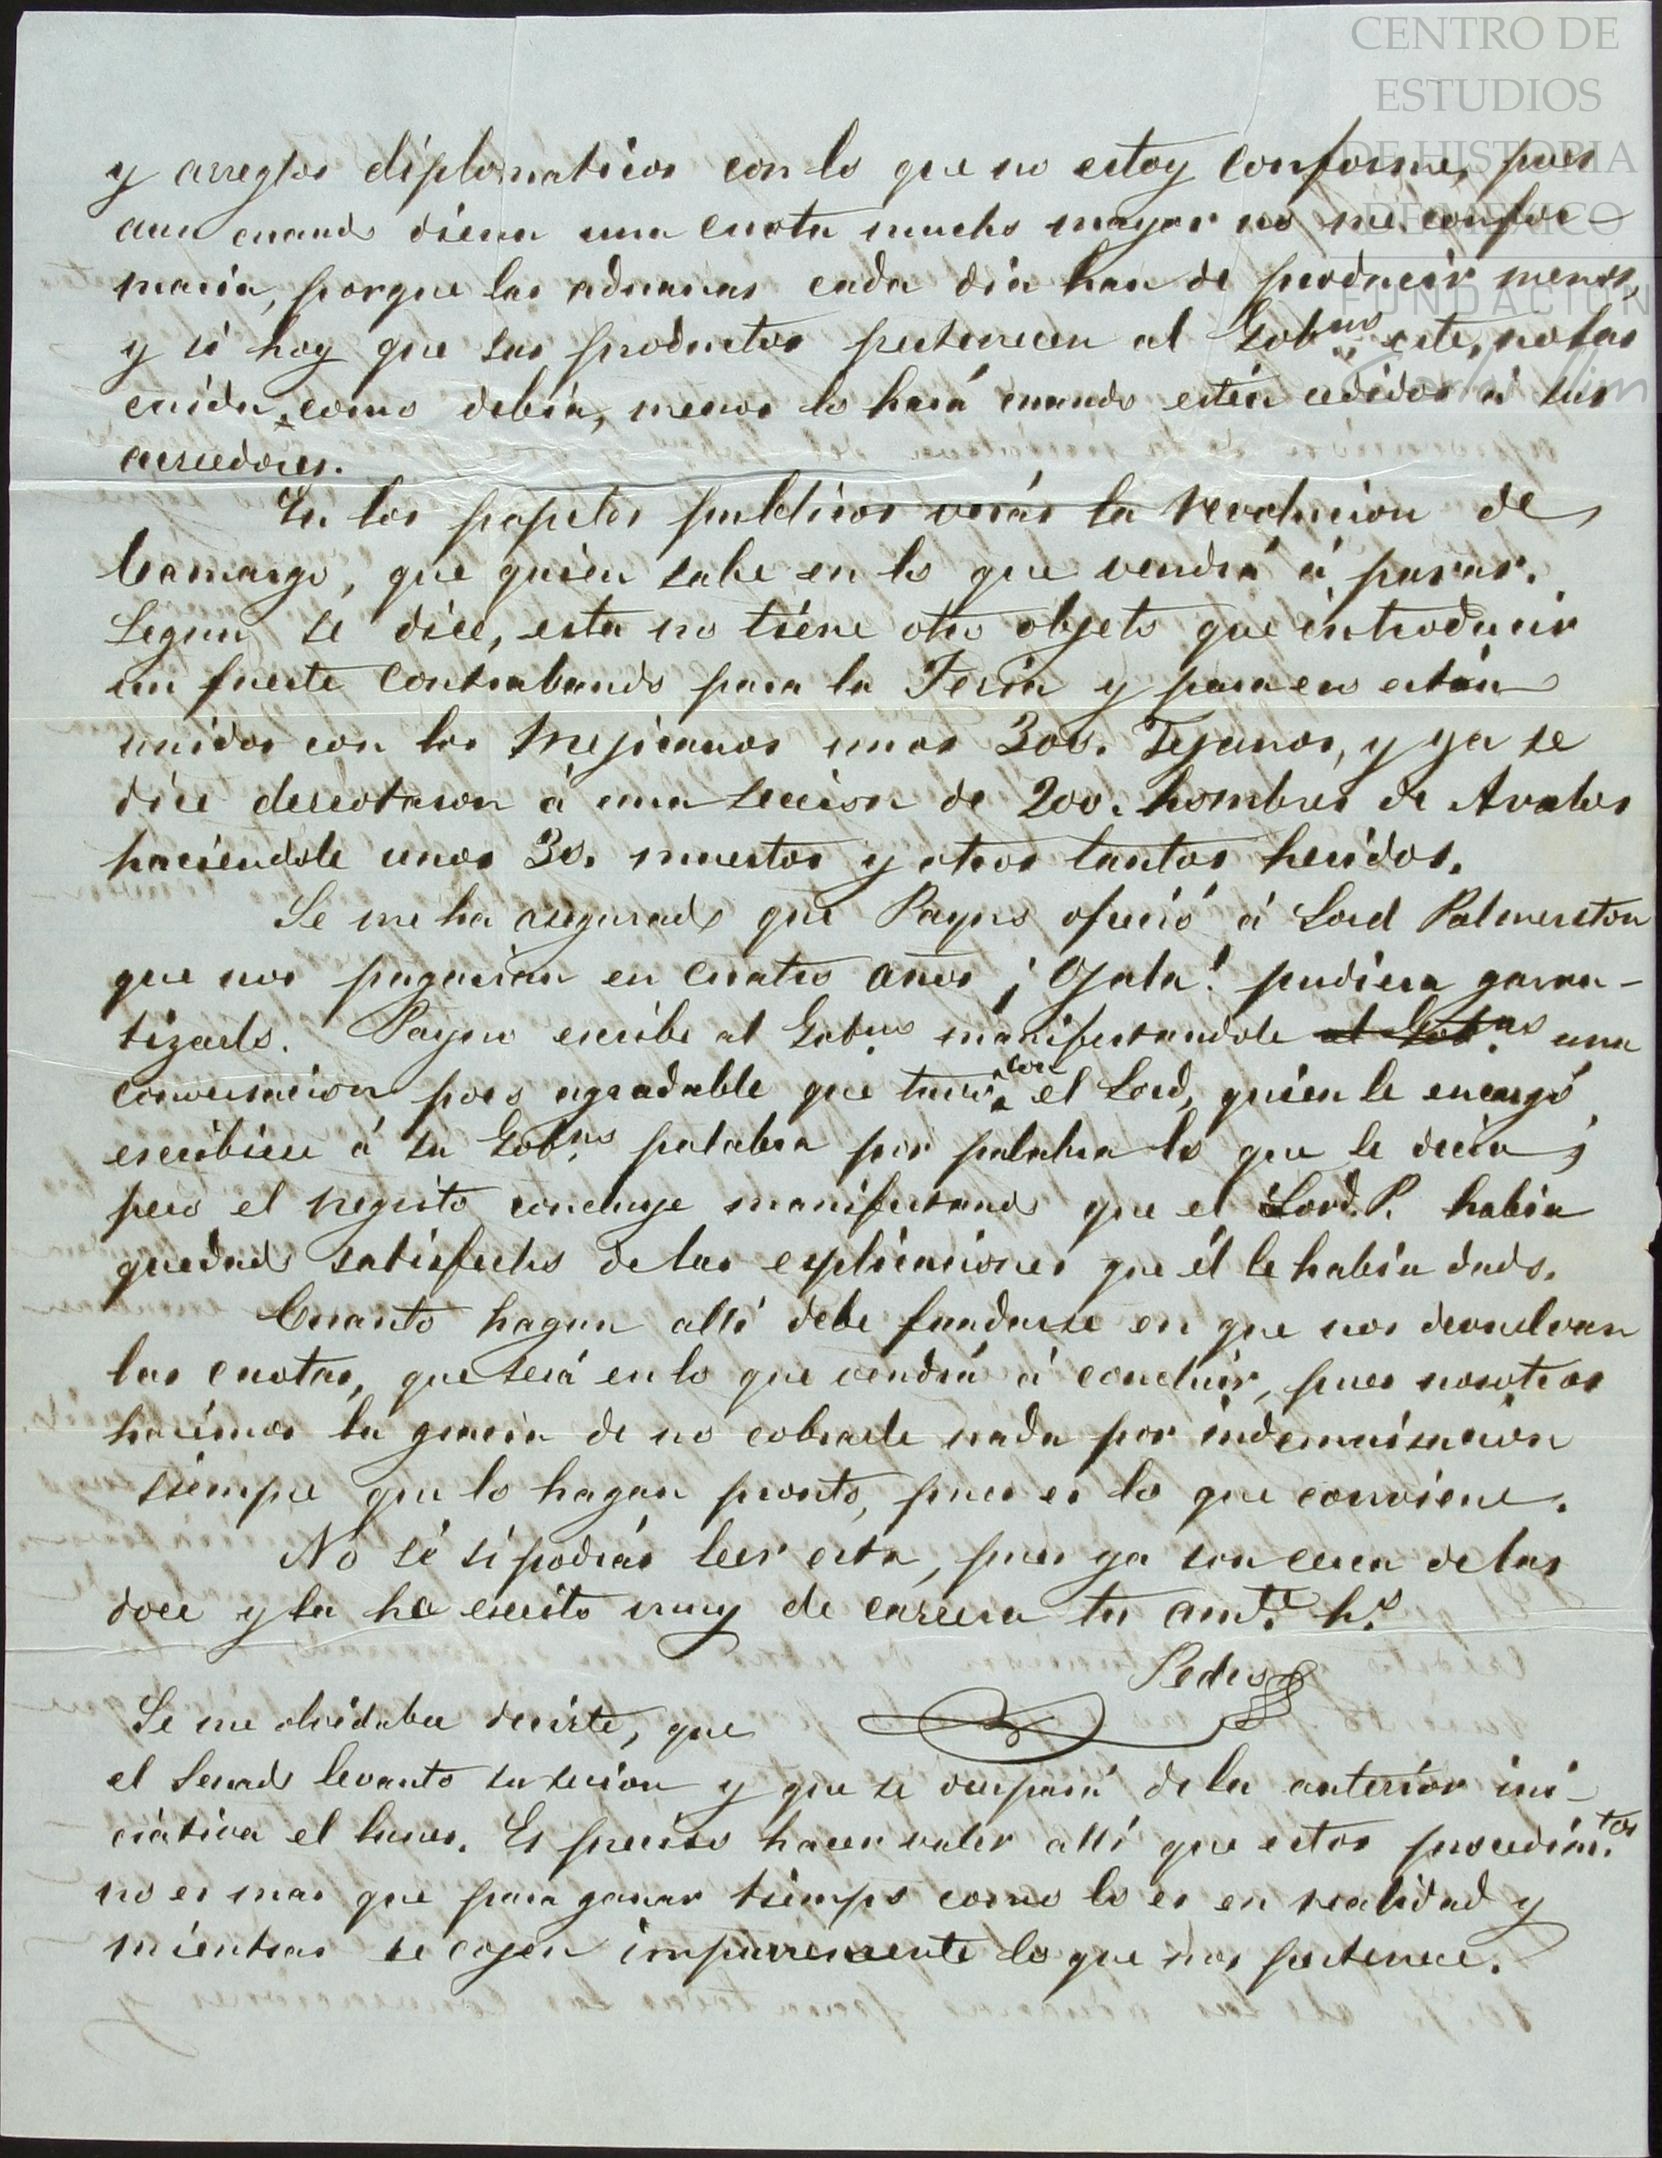 CENTRO DE
ESTUDIOS
DE HISTORIA
DE MÉXICO
FUNDACIÓN
Carlos Slim
y arreglos diplomaticos con lo que no estoy conforme, pues
aun cuando dieran una cuota mucho mayor no me confor-
maria, porque las aduanas cada dia han de producir menos,
y si hoy que sus productos pertenecen al Gob.no este, no las
cuida como debia, menos lo hará cuando estén cedidos á sus
acreedores.
En los papeles publicos verás la revolucion de
Camargo, que quien sabe en lo que vendrá á parar.
Segun se dice, esta no tiene otro objeto que introducir
un fuerte contrabando para la Feria y para eso están
unidos con los Mejicanos unos 300. Tejanos, y ya se
dice derrotaron á una seccion de 200. hombres de Avalos
haciendole unos 30. muertos y otros tantos heridos.
Se me ha asegurado que Payno ofreció á Lord Palmerston
que nos pagarian en cuatro años ¡Ojala! pudiera garan-
tizarlo. Payno escribe al Gob.no manifestandole al Gob.no una
conversacion poco agradable que tuvo con el Lord, quien le encargó
escribiese á su Gob.no palabra por palabra lo que le decia;
pero el negrito concluye manifestando que el Lord. P. habia
quedado satisfecho de las esplicaciones que él le habia dado.
Cuanto hagan alli debe fundarse en que nos devuelvan
las cuotas, que será en lo que vendrá á concluir, pues nosotros
hacimos la gracia de no cobrarle nada por indemnisacion
siempre que lo hagan pronto, pues es lo que conviene.
No sé si podrás leer esta, pues ya son cerca de las
doce y la he escrito muy de carrera tu am.te h.o
Pedro
Se me olvidaba decirte, que
el Senado levanto su secion y que se ocupará de la anterior ini-
ciativa el lunes. Es preciso hacer valer allí que estos procedim.tos
no es mas que para ganar tiempo como lo es en realidad y
mientras se cojen impunemente lo que nos pertenece.